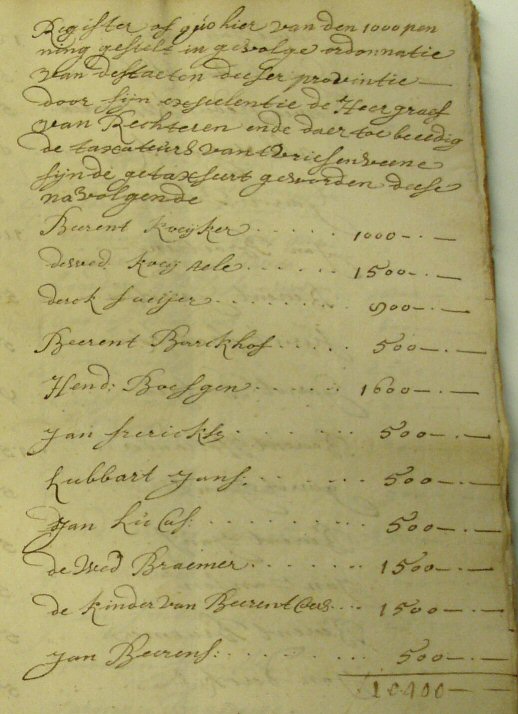 Register of quohier van den 1000 pen
ning gestelt in gevolge ordonnatie
van de staeten deeser provintie —
door sijn exselentie de Heer graef
van Rechteren ende daer toe beedig
de taxateurs van t Vriesenveene
sijnde getaxseert geworden deese
navolgende
Beerent Koeijker . . . . . . 1000—.—
de wed. Koeij . . . . . . 1500—.—
derck . . . . . . . 900—.—
Beerent Barckhof . . . . . 500—.—
Hend: Boesgen . . . . . . 1600—.—
Jan frericks . . . . . . . 500—.—
Lubbart Jans: . . . . . . . 500—.—
Jan Lucas: . . . . . . . . 500—.—
de Wed Braemer . . . . . . 1500—.—
de Kinder van Beerent Claes . . . 1500—.—
Jan Beerens: . . . . . . . . 500—.—
10400—.—